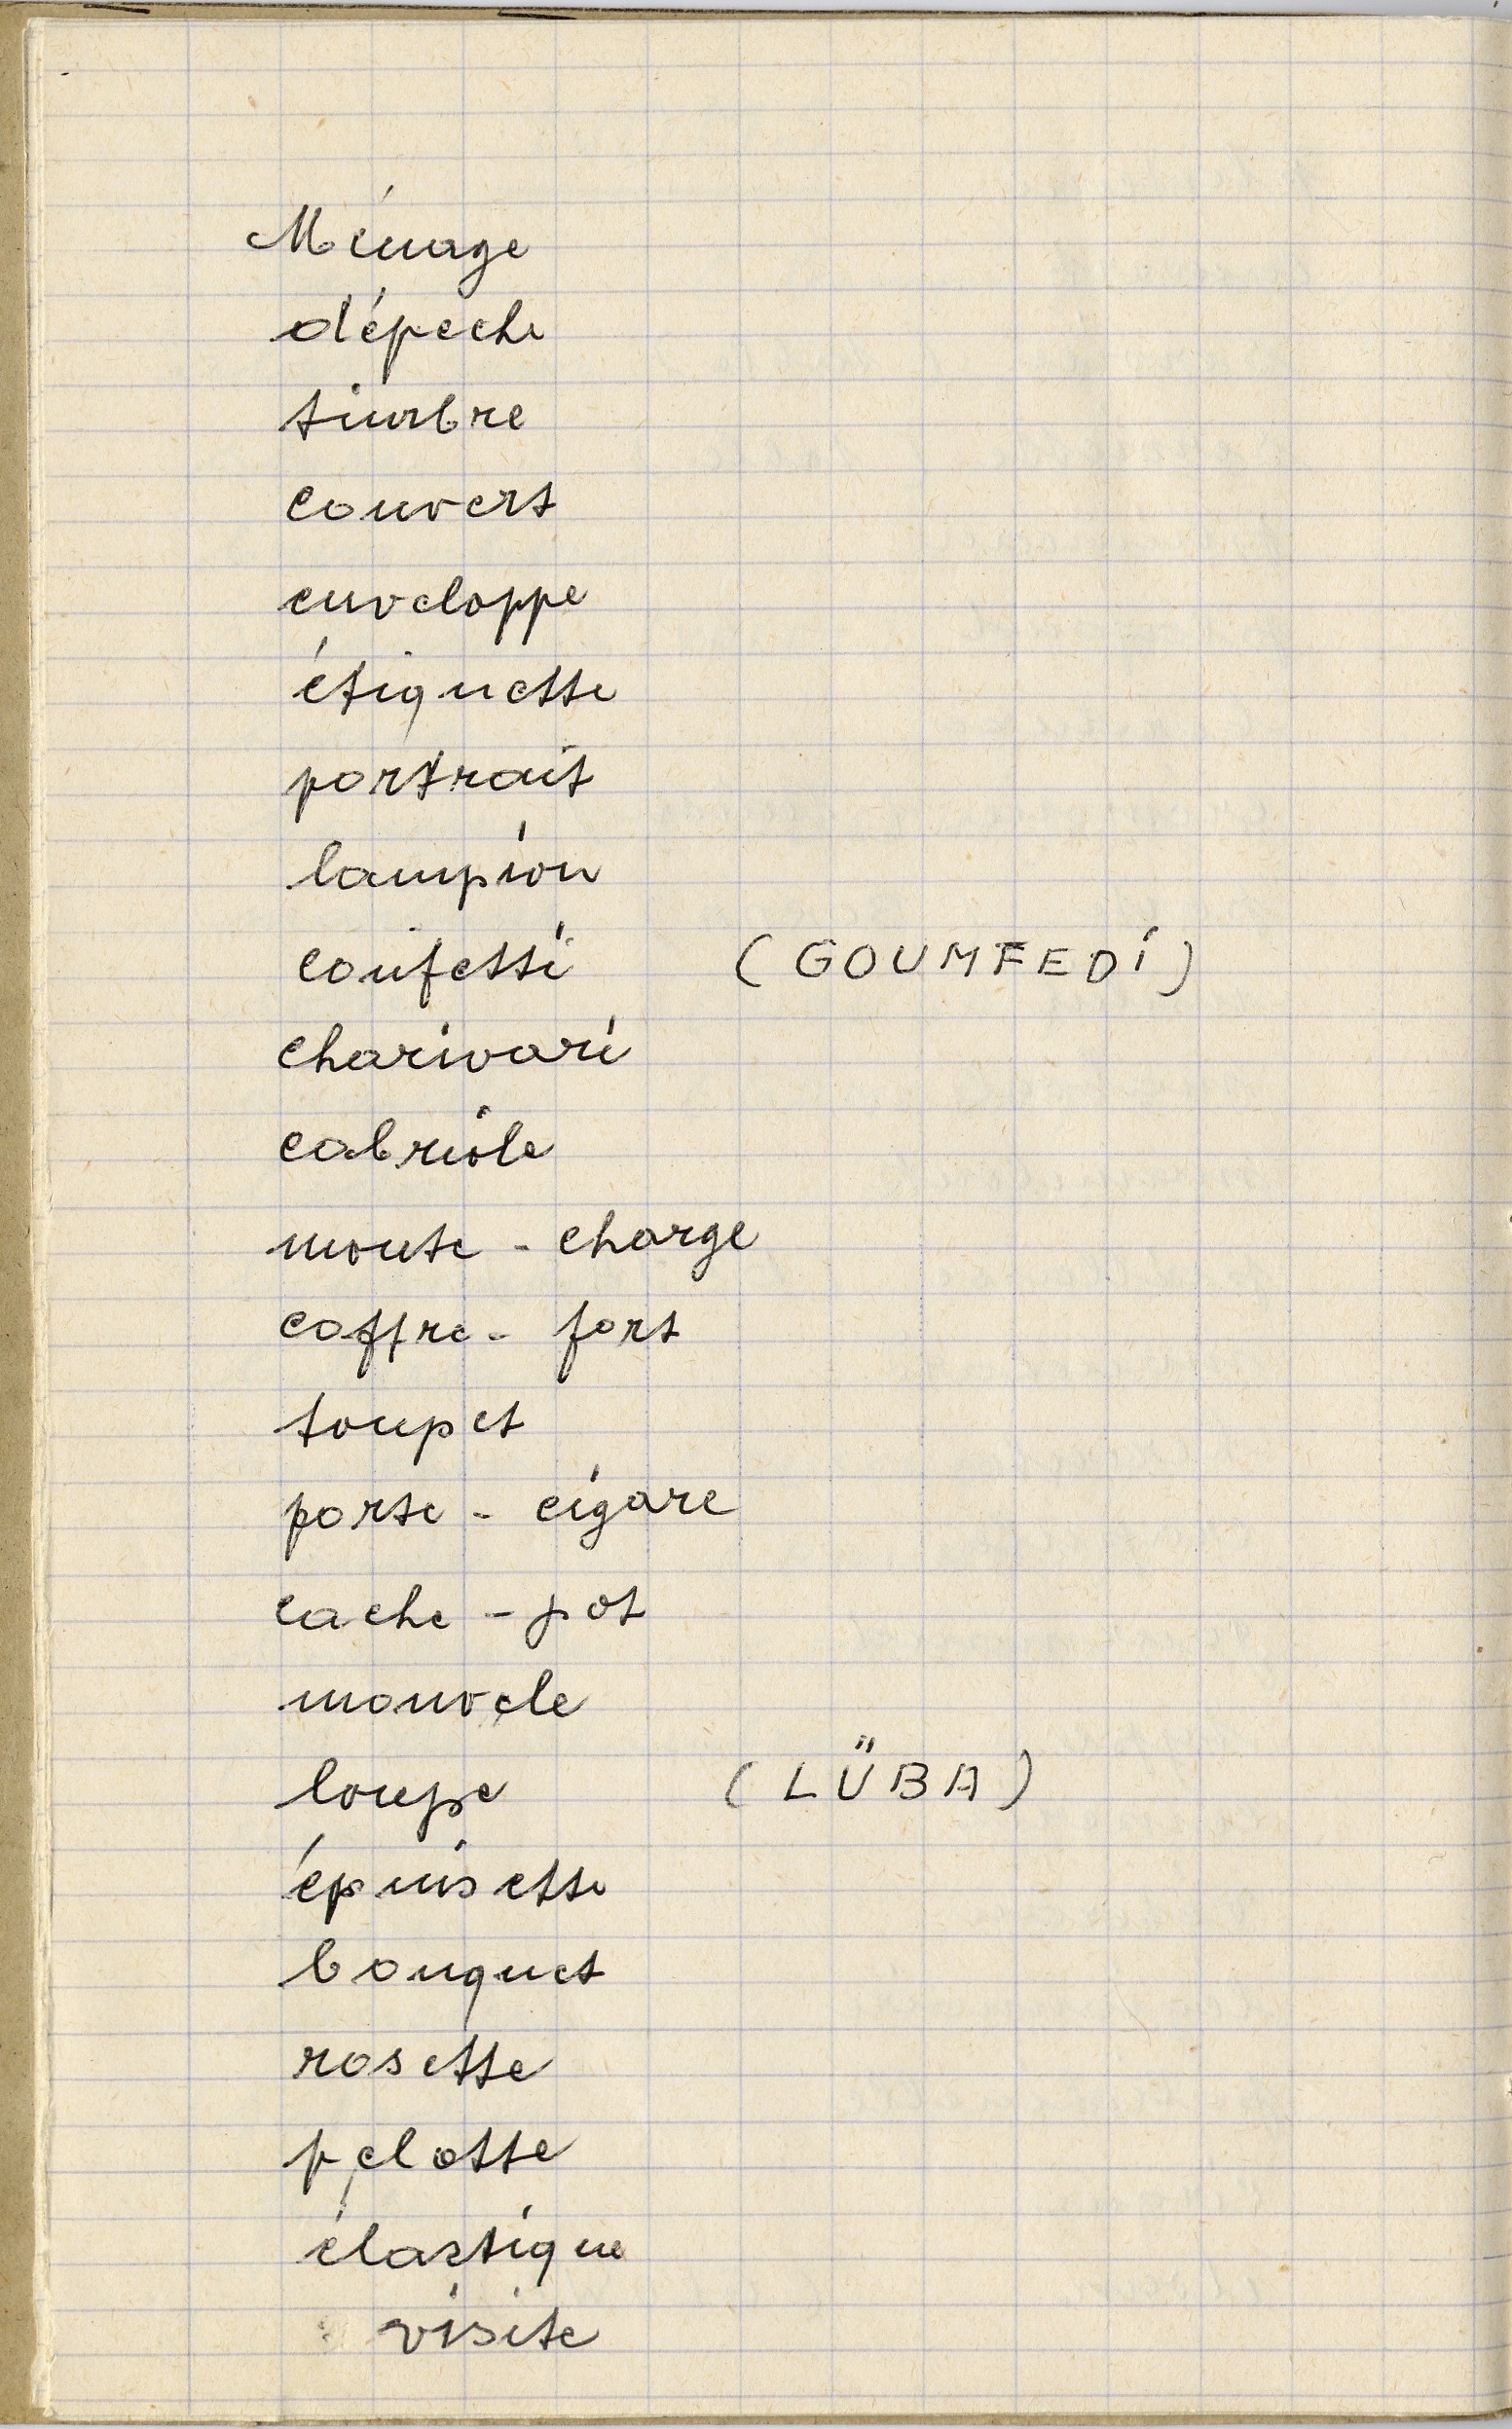 Ménage
dépeche
timbre
couvert
enveloppe
étiquette
portrait
lampion
confetti (GOUMFEDI)
charivari
cabriole
monte - charge
coffre - fort
toupet
porte - cigare
cache - pot
monocle
loupe (LÜBA)
épuisette
bouquet
rosette
pelotte
élastique
visite